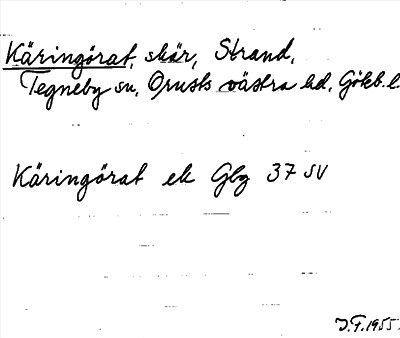 Käringörat, skär, Strand,
Tegneby sn, Orusts västra hd, Götb. l.
Käringörat ek Gbg 37 SV
J.F. 1955